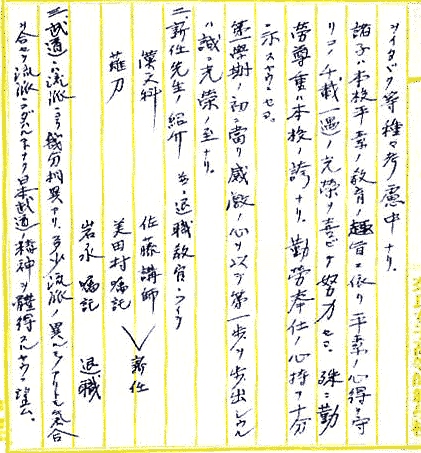 ヲイタダク等種々考慮中ナリ。
諸子ハ本校平素ノ教育ノ趣旨ニ依リ平素ノ心得ヲ守
リコノ千載一遇ノ光栄ヲ喜ビテ努力セヨ 殊ニ勤
労尊重ハ本校ノ誇ナリ 勤労奉仕ノ心持ヲ十分
ニ示スヤウニセヨ。
第一学期ノ初ニ当リ感激ノ心ヲ以テ第一歩ヲ歩ミ出シウル
ハ誠ニ光栄ノ至ナリ。
二、新任先生ノ紹介 及、退職教官ニツイテ
漢文科 佐藤講師
薙刀 美田村嘱記 新任
岩永嘱記 退職
三、武道ハ流派ニヨリ幾分相異ナリ 多少流派ノ異レルモノアリトモ気合
ヲ合セテ流派ニコダハルコトナク日本武道ノ精神ヲ體得スルヤウニ望ム。